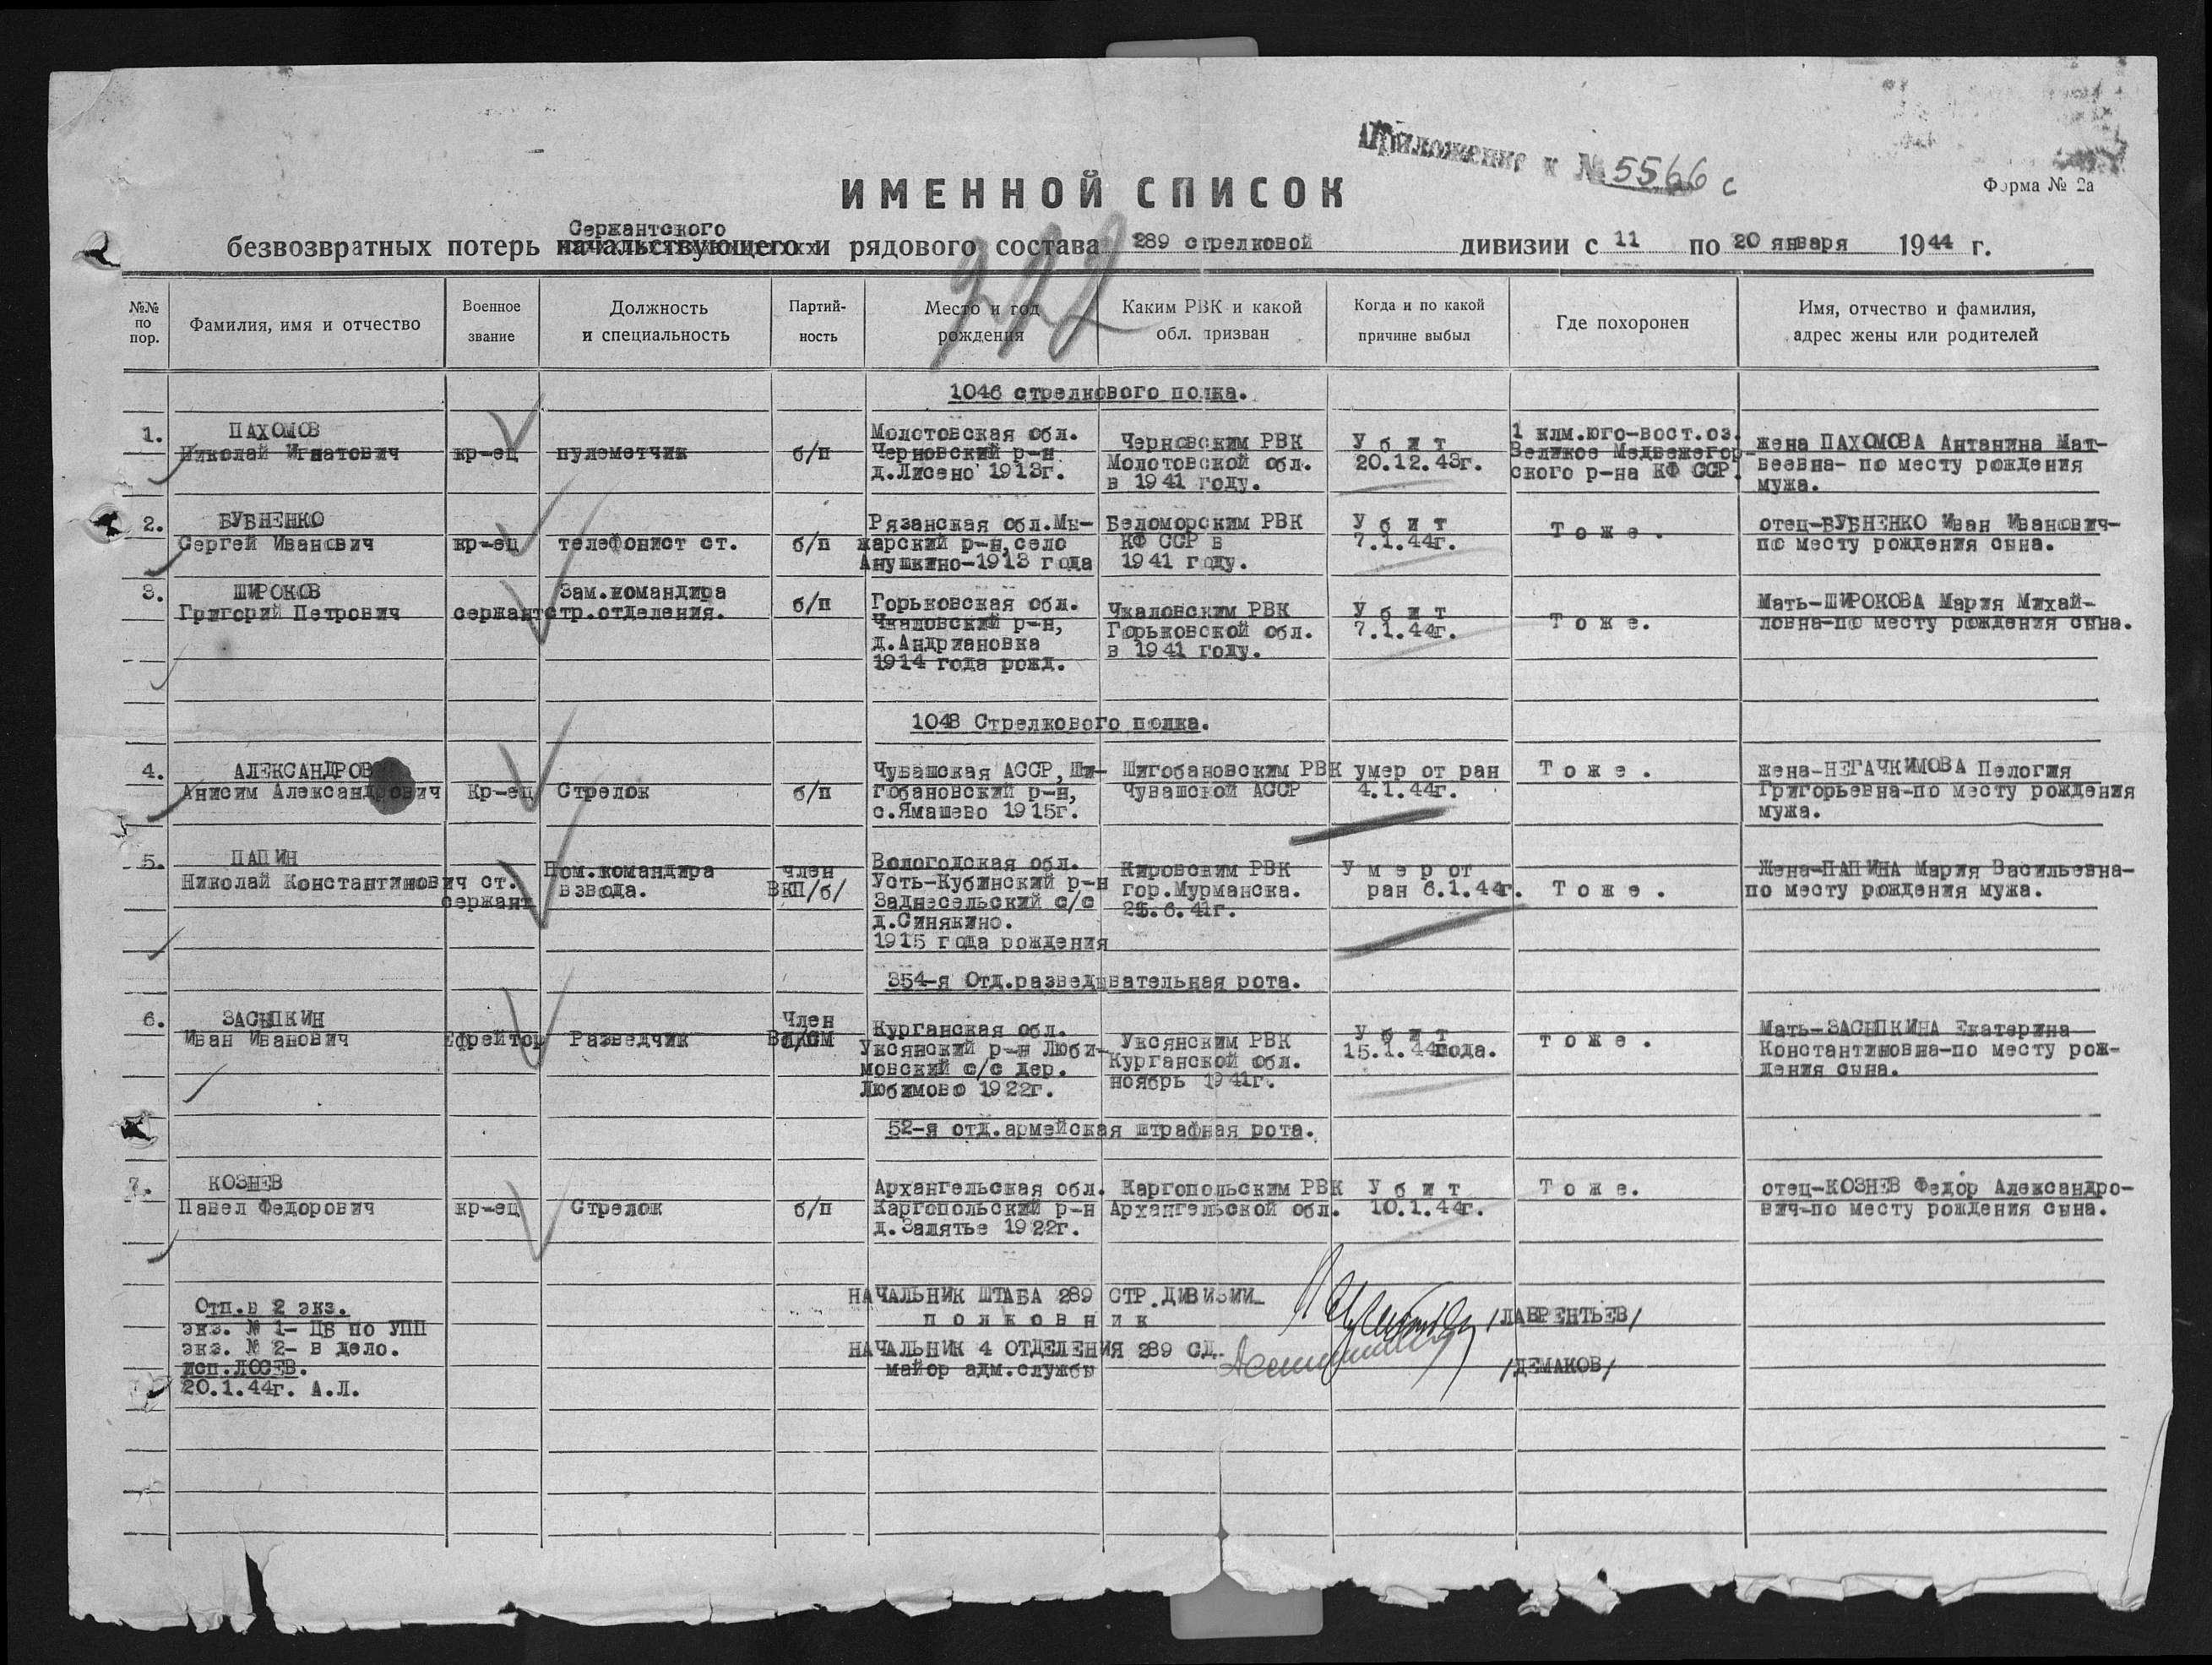 Приложение к № 5566 с
ИМЕННОЙ СПИСОК
Форма № 2а
Сержантского
безвозвратных потерь начальствующего и рядового состава 289 стрелковой дивизии с 11 по 20 января 1944 г.
322
№№ по пор.
Фамилия, имя и отчество
Военное звание
Должность и специальность
Партий-ность
Место и год рождения
Каким РВК и какой обл. призван
Когда и по какой причине выбыл
Где похоронен
Имя, отчество и фамилия, адрес жены или родителей
1046 стрелкового полка.
1.
ПАХОМОВ
Николай Игнатович
кр-ец
пулеметчик
б/п
Молотовская обл.
Черновский р-н
д.Лисено 1913г.
Черновским РВК
Молотовской обл.
в 1941 году.
Убит
20.12.43г.
1 клм.юго-вост.оз.
Великое Медвежегор-
ского р-на КФ ССР.
жена ПАХОМОВА Антанина Мат-
веевна- по месту рождения
мужа.
2.
БУБНЕНКО
Сергей Иванович
кр-ец
телефонист ст.
б/п
Рязанская обл.Мы-
жарский р-н,село
Анушкино-1913 года
Беломорским РВК
КФ ССР в
1941 году.
Убит
7.1.44г.
Тоже.
отец-БУБНЕНКО Иван Иванович-
по месту рождения сына.
3.
ШИРОКОВ
Григорий Петрович
сержант
Зам.командира
стр.отделения.
б/п
Горьковская обл.
Чкаловский р-н,
д.Андриановка
1914 года рожд.
Чкаловским РВК
Горьковской обл.
в 1941 году.
Убит
7.1.44г.
Тоже.
Мать-ШИРОКОВА Мария Михай-
ловна-по месту рождения сына.
1048 Стрелкового полка.
4.
АЛЕКСАНДРОВ
Анисим Александрович
Кр-ец
Стрелок
б/п
Чувашская АССР,Ши-
гобановский р-н,
с.Ямашево 1915г.
Шигобановским РВК
Чувашской АССР
умер от ран
4.1.44г.
Тоже.
жена-НЕГАЧКИМОВА Пелогия
Григорьевна-по месту рождения
мужа.
5.
ПАПИН
Николай Константинович
ст.
сержант
Пом.командира
взвода.
член
ВКП/б/
Вологодская обл.
Усть-Кубинский р-н
Заднесельский с/с
д.Синякино.
1915 года рождения
Кировским РВК
гор.Мурманска.
25.6.41г.
Умер от
ран 6.1.44г.
Тоже.
Жена-ПАПИНА Мария Васильевна-
по месту рождения мужа.
354-я Отд.разведывательная рота.
6.
ЗАСЫПКИН
Иван Иванович
Ефрейтор
Разведчик
Член
ВЛКСМ
Курганская обл.
Уксянский р-н Люби-
мовский с/с дер.
Любимово 1922г.
Уксянским РВК
Курганской обл.
ноябрь 1941г.
Убит
15.1.44года.
тоже.
Мать-ЗАСЫПКИНА Екатерина
Константиновна-по месту рож-
дения сына.
52-я отд.армейская штрафная рота.
7.
КОЗНЕВ
Павел Федорович
кр-ец
Стрелок
б/п
Архангельская обл.
Каргопольский р-н
д.Залятье 1922г.
Каргопольским РВК
Архангельской обл.
Убит
10.1.44г.
Тоже.
отец-КОЗНЕВ Федор Александро-
вич-по месту рождения сына.
НАЧАЛЬНИК ШТАБА 289 СТР.ДИВИЗИИ
полковник
/ЛАВРЕНТЬЕВ/
НАЧАЛЬНИК 4 ОТДЕЛЕНИЯ 289 СД.
майор адм.службы
/ДЕМАКОВ/
Отп.в 2 экз.
экз. № 1- ЦБ по УПП
экз. № 2- в дело.
исп.ЛОСЕВ.
20.1.44г. А.Л.